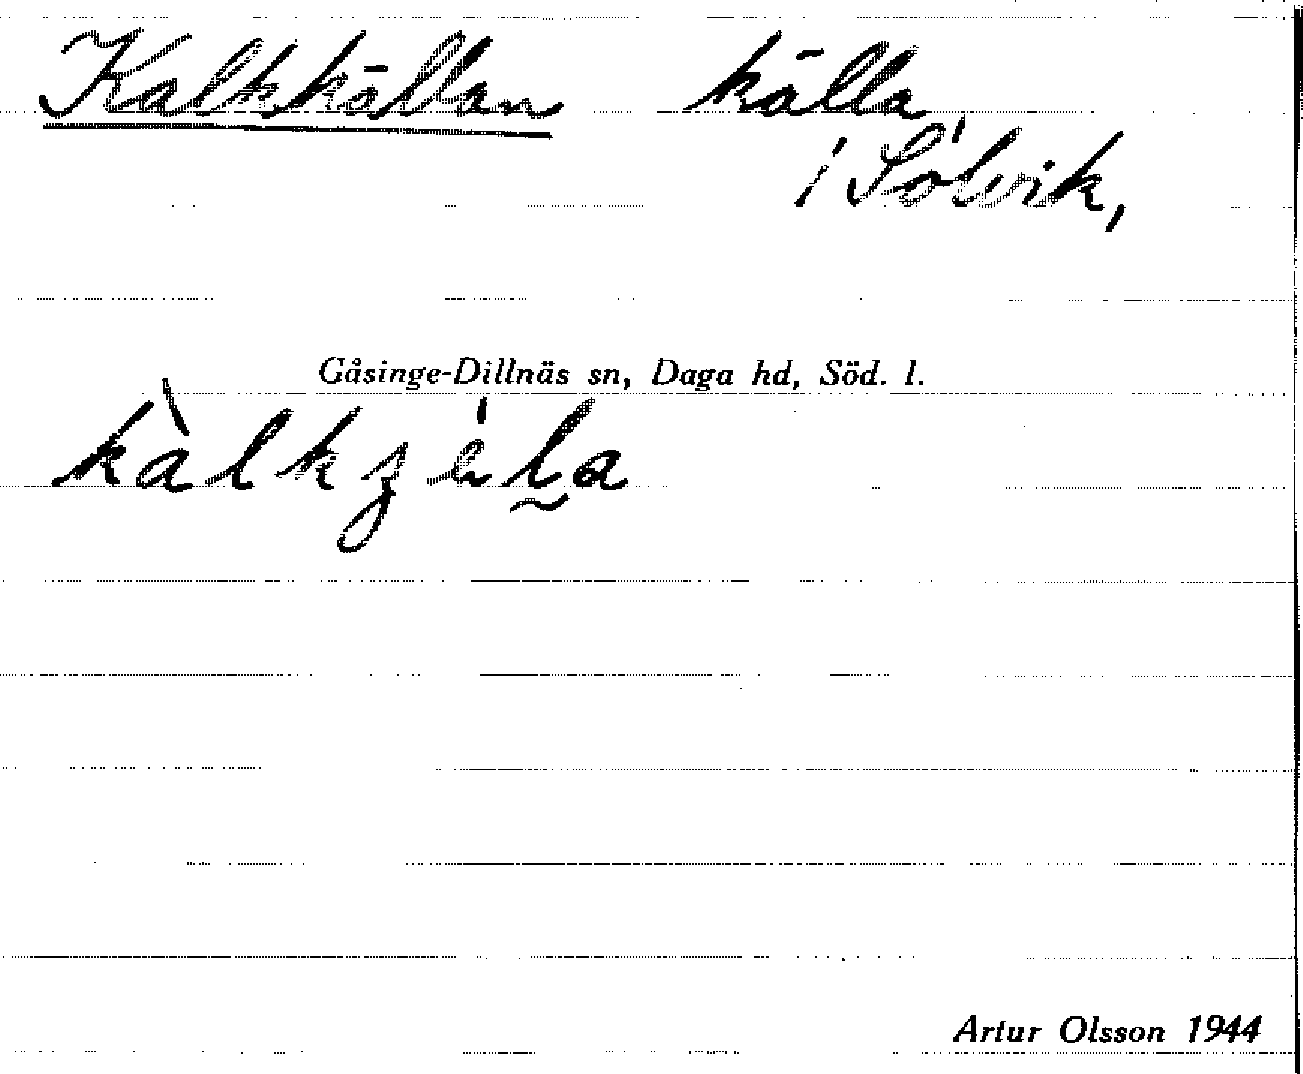 Kalkkällan källa
i Sölvik,
Gåsinge-Dillnäs sn, Daga hd, Söd. l.
Artur Olsson 1944